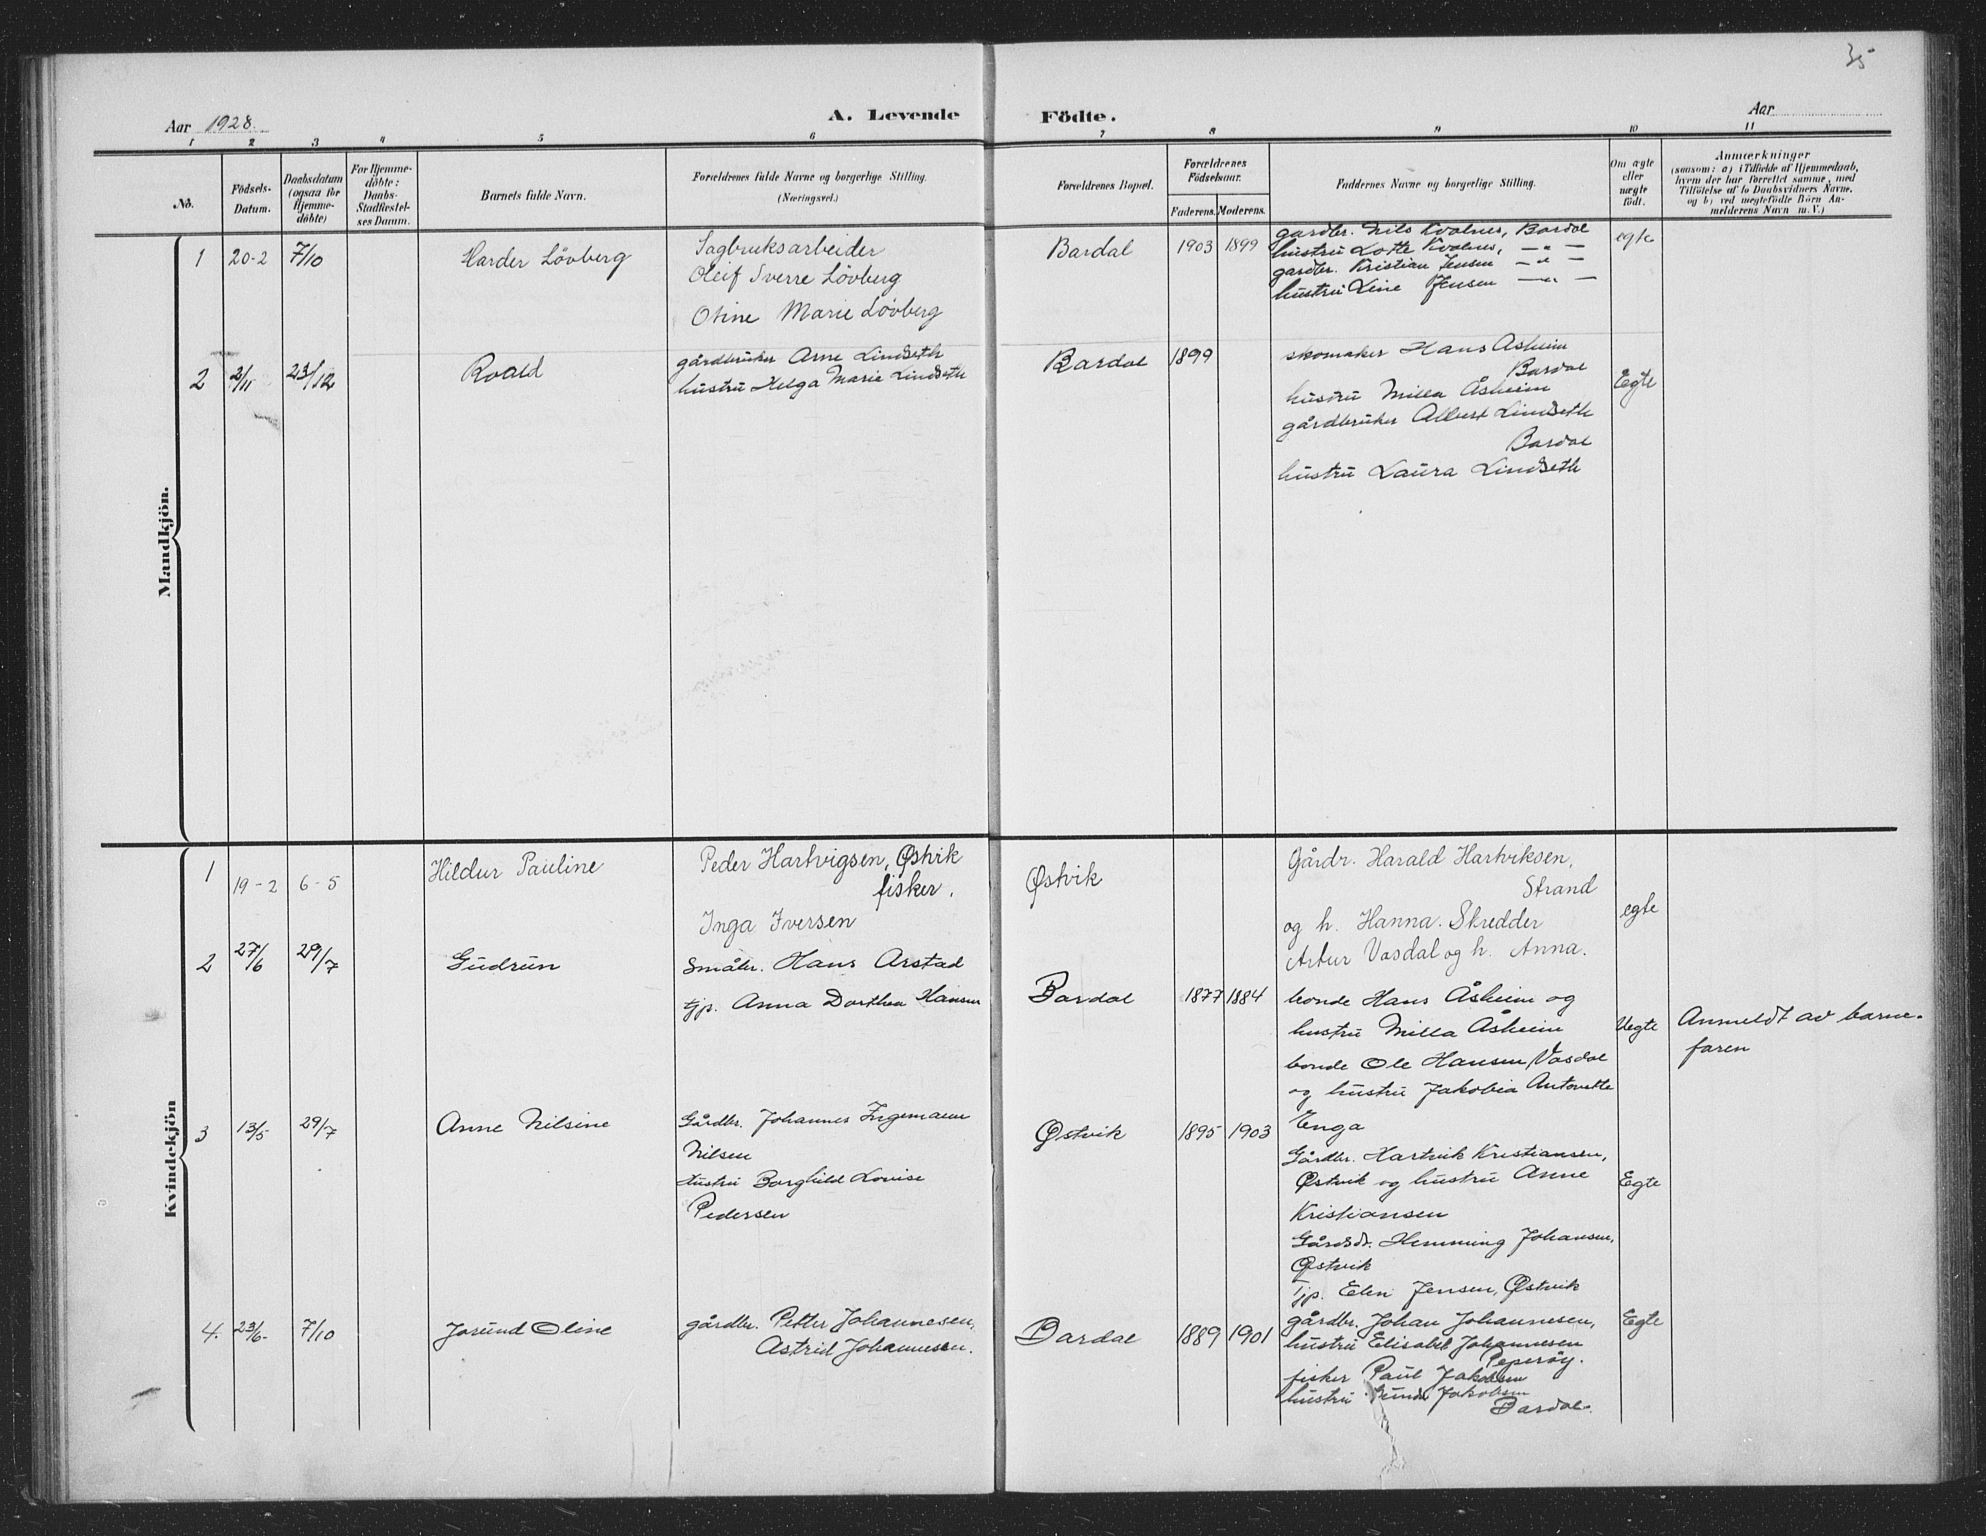 35
Aar 1928.
A. Levende Födte.
Aar
1 2 3 4 5 6 7 8 9 10 11
No.
Födsels-
Datum.
Daabsdatum
(ogsaa for
Hjemme-
döbte)
For Hjemme-
döbte:
Daabs-
Stadfæstel-
ses Datum.
Barnets fulde Navn.
Forældrenes fulde Navne og borgerlige Stilling.
(Næringsvei.)
Forældrenes Bopæl.
Forældrenes
Födselsaar.
Faderens. Moderens.
Faddernes Navne og borgerlige Stilling.
Om ægte
eller
uægte
födt.
Anmærkninger
(saasom: a) i Tilfælde af Hjemmedaab,
hvem der har forrettet samme, med
Tilföielse af to Daabsvidners Navne.
og b) ved uegtefödte Börn An-
melderens Navn m. V.)
Mandkjön.
1 20-2 7/10 Harder Lövberg
Sagbruksarbeider
Oleif Sverre Lövberg
Otine Marie Lövberg
Bardal 1903 1899
gardbr. Nils Kvalnes, Bardal
hustru Lotte Kvalnes, — " —
gardbr. Kristian Jensen — " —
hustru Line Jensen — " —
egte
2 2/11 23/12 Roald
gårdbruker Arne Lindseth
hustru Helga Marie Lindseth
Bardal 1899
skomaker Hans Åsheim
Bardal
hustru Milla Åsheim
gårdbruker Albert Lindseth
Bardal
hustru Laura Lindseth
Egte
Kvindekjön
1 19-2 6-5 Hildur Pauline
Peder Hartvigsen, Østvik
fisker.
Inga Iversen
Østvik
Gårdr. Harald Hartviksen,
Strand
og h. Hanna. Skredder
Artur Vasdal og h. Anna.
egte
2 27/6 29/7 Gudrun
Småbr. Hans Arstad
tjp. Anna Dorthea Hansen
Bardal 1877 1884
bonde Hans Åsheim og
hustru Milla Åsheim
bonde Ole Hansen, Vasdal
og hustru Jakobia Antonette
Uegte
Anmeldt av barne-
faren
3 13/5 29/7 Anne Nilsine
Gårdbr. Johannes Ingemann
Nilsen
Hustru Borghild Lovise
Pedersen
Østvik 1895 1903
Enga
Gårdbr. Hartvik Kristiansen,
Østvik og hustru Anne
Kristiansen
Gårdsdr. Hemming Johansen,
Østvik
Tjp. Elen Jensen, Østvik
Egte
4. 23/6- 7/10 Jorund Oline
gårdbr. Petter Johannesen,
Astrid Johannesen.
Bardal 1889 1901
gårdbr. Johan Johannesen,
hustru Elisabet Johannesen
fisker Paul Jakobsen
hustru Jakobsen
Bardal.
Egte